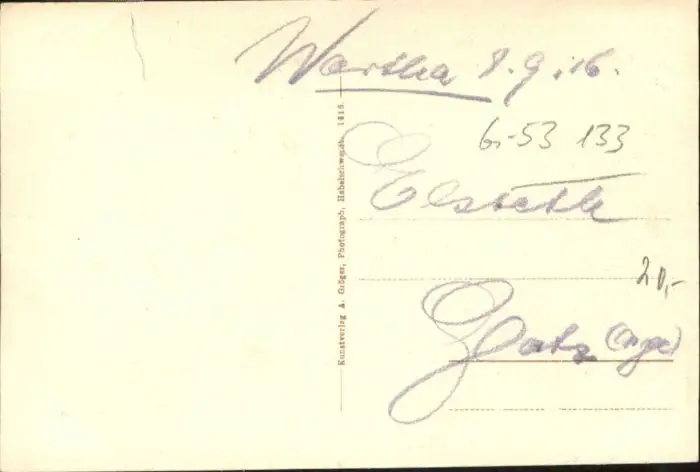 Wartha 8.9.16.
6-53 133
Elsbeth
20,-
Glatz
Kunstverlag A. Gröger, Photograph, Habelschwerdt. 1915.